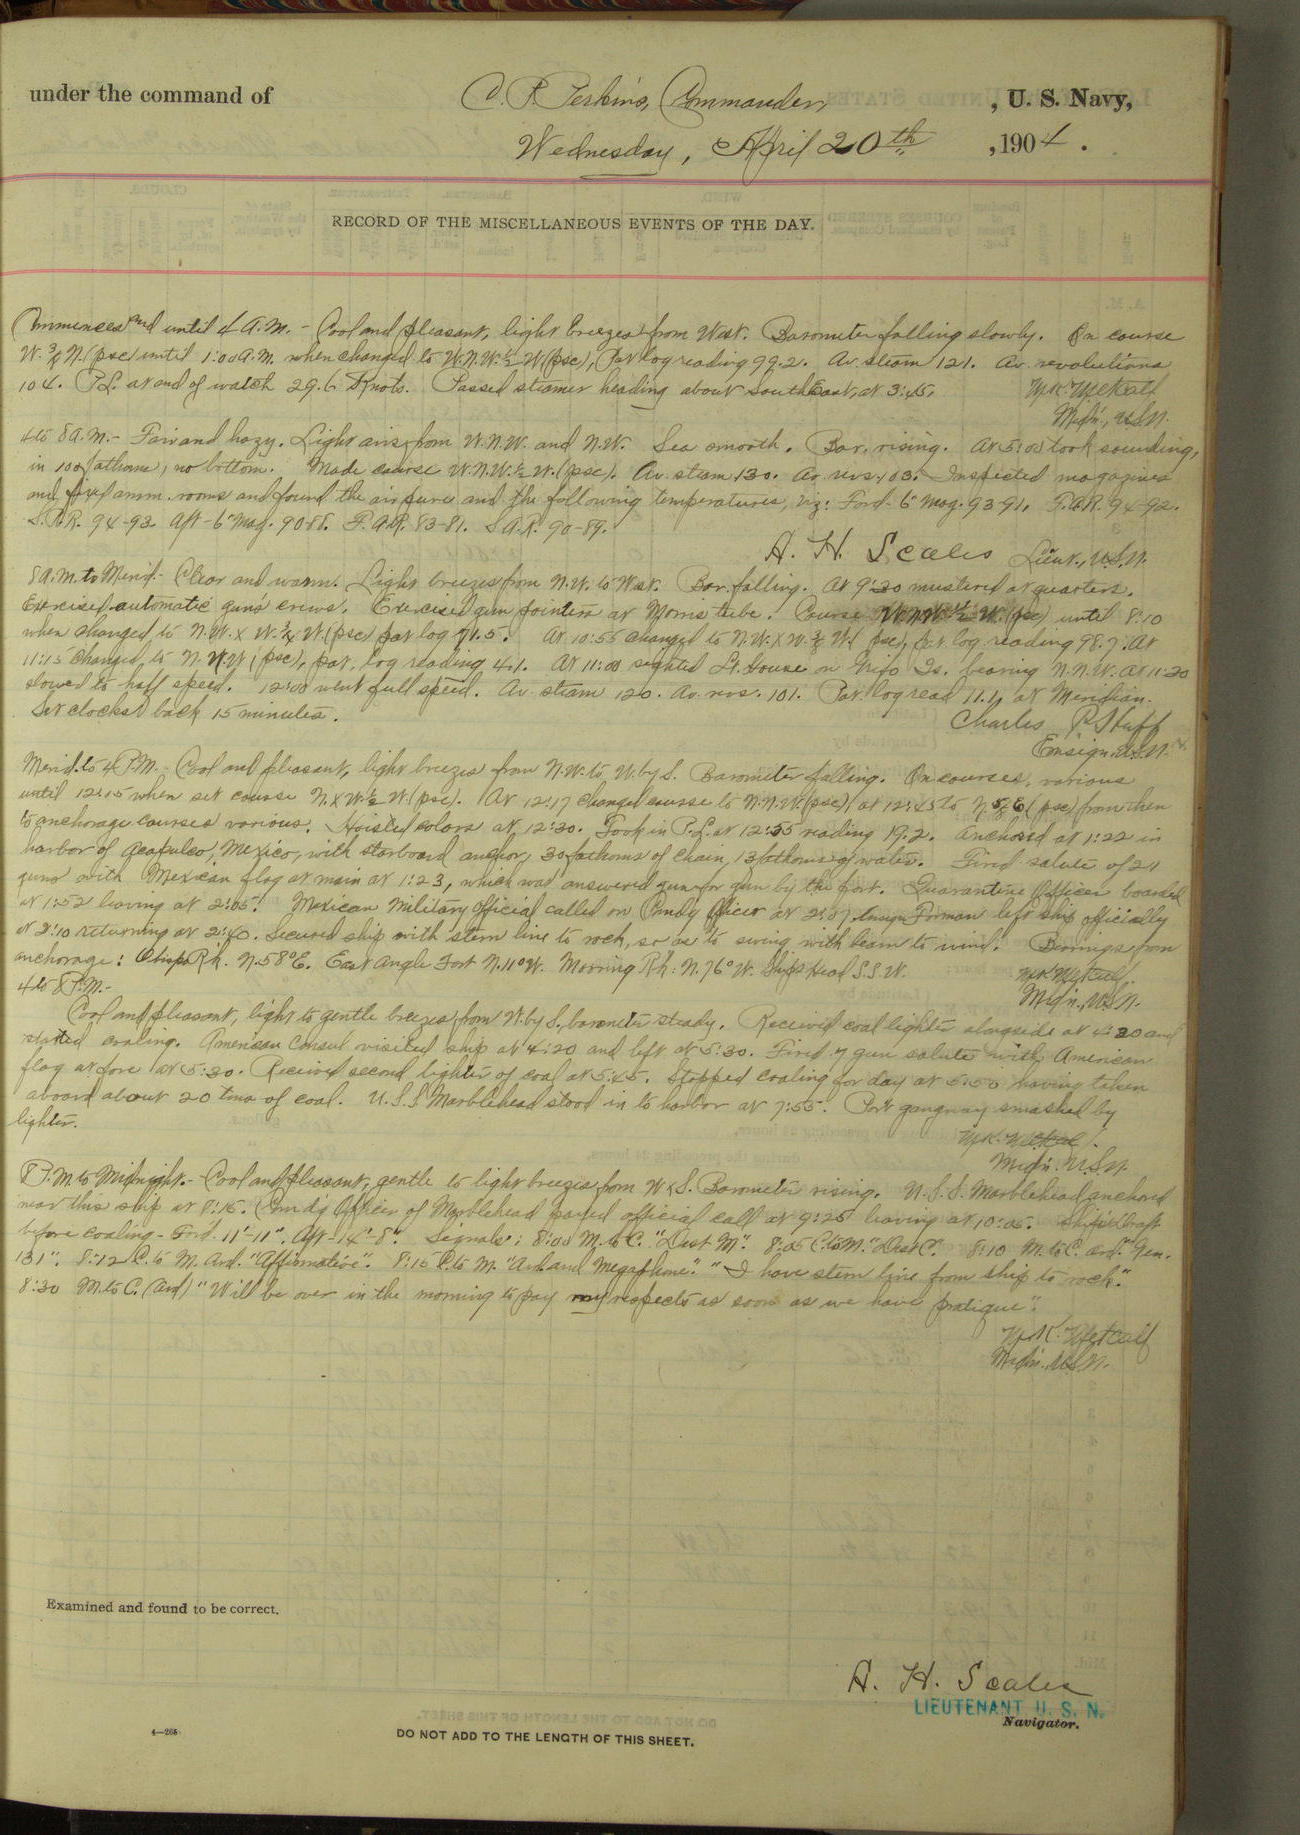 under the command of C. P. Perkins, Commander, U. S. Navy,
Wednesday, April 20th, 1904.
RECORD OF THE MISCELLANEOUS EVENTS OF THE DAY.
Commences and until 4 A.M. - Cool and pleasant, light breezes from West. Barometer falling slowly. On course
W. ¾ N. (psc) until 1:00 A.M. when changed to W.N.W. ½ W. (psc), Pat log reading 99.2. Av. steam 121. Av. revolutions
104. P.L. at end of watch 29.6 Knots. Passed steamer heading about South East, at 3:45.
M.K. Metcalf
Midn., U.S.N.
4 to 8 A.M. - Fair and hazy. Light airs from W.N.W. and N.W. Sea smooth. Bar. rising. At 5:05 took sounding,
in 100 fathoms, no bottom. Made course W.N.W. ½ W. (psc). Av. steam 130. Av. revs. 103. Inspected magazines
and fixed amm. rooms and found the air pure and the following temperatures, viz: Ford. 6" Mag. 93-91. F.A.R. 94-92.
S.A.R. 94-93. Aft - 6" Mag. 90-88. F.A.R. 83-81. S.A.R. 90-89.
A. H. Scales Lieut., U.S.N.
8 A.M. to Merid. - Clear and warm. Light breezes from N.W. to West. Bar. falling. At 9:30 mustered at quarters.
Exercised automatic guns crews. Exercised gun pointers at Morris tube. Course W.N.W. ½ W. (psc) until 8:10
when changed to N.W. x W. ¾ W. (psc) pat log 71.5. At 10:55 changed to N.W. x W. ½ W. (psc), pat log reading 98.7. At
11:15 changed to N.W. (psc), pat. log reading 4.1. At 11:00 sighted Lt. house on Grifo Is. bearing N.N.W. At 11:20
slowed to half speed. 12:00 went full speed. Av. steam 120. Av. revs. 101. Pat. log read 11.1, at Meridian.
Set clocks back 15 minutes.
Charles P. Huff
Ensign U.S.N.
Merid. to 4 P.M. - Cool and pleasant, light breezes from N.W. to W. by S. Barometer falling. On courses, various
until 12:15 when set course N x W. ½ W. (psc). At 12:17 changed course to N.N.W. (psc) at 12:45 to (psc) from then
to anchorage courses various. Hoisted colors at 12:30. Took in P.L. at 12:55 reading 19.2. Anchored at 1:22 in
harbor of Acapulco, Mexico, with starboard anchor, 30 fathoms of chain, 13 fathoms of water. Fired salute of 21
guns with Mexican flag at main at 1:23, which was answered gun for gun by the fort. Quarantine Officer boarded
at 1:52 leaving at 2:05. Mexican Military Official called on Comdg Officer at 2:07. Ensign Forman left ship officially
at 2:10 returning at 2:40. Secured ship with stern line to rock, so as to swing with beam to wind. Bearings from
anchorage: Obispo Rk. N. 58° E. East Angle Fort N. 11° W. Morring Rk. N. 76° W. Ships Head S.S.W.
M.K. Metcalf
Midn., U.S.N.
4 to 8 P.M. -
Cool and pleasant, light to gentle breezes from W. by S., barometer steady. Received coal lighter alongside at 4:20 and
started coaling. American Consul visited ship at 4:20 and left at 5:30. Fired 7 gun salute with American
flag at fore at 5:30. Received second lighter of coal at 5:45. Stopped coaling for day at 5:50 having taken
aboard about 20 tons of coal. U.S.S. Marblehead stood in to harbor at 7:55. Port gangway smashed by
lighter.
M.K. Metcalf.
Midn. U.S.N.
8 P.M. to Midnight. - Cool and pleasant, gentle to light breezes from W x S. Barometer rising. U.S.S. Marblehead anchored
near this ship at 8:15. Comdg Officer of Marblehead payed official call at 9:25 leaving at 10:05. Ship's draft
before coaling - Ford. 11'-11". Aft - 14'-8". Signals: 8:00 M. to C. "Dest M". 8:05 C. to M. "Dest C". 8:10 M. to C. Ard. "Gen.
131". 8:12 C. to M. Ard. "Affirmative". 8:15 C. to M. "Ard. and Megaphone". "I have stern line from ship to rock."
8:30 M. to C. (Ard) "Will be over in the morning to pay my respects as soon as we have pratique".
M.K. Metcalf
Midn. U.S.N.
Examined and found to be correct.
A. H. Scales
LIEUTENANT U. S. N.
Navigator.
4—265
DO NOT ADD TO THE LENGTH OF THIS SHEET.